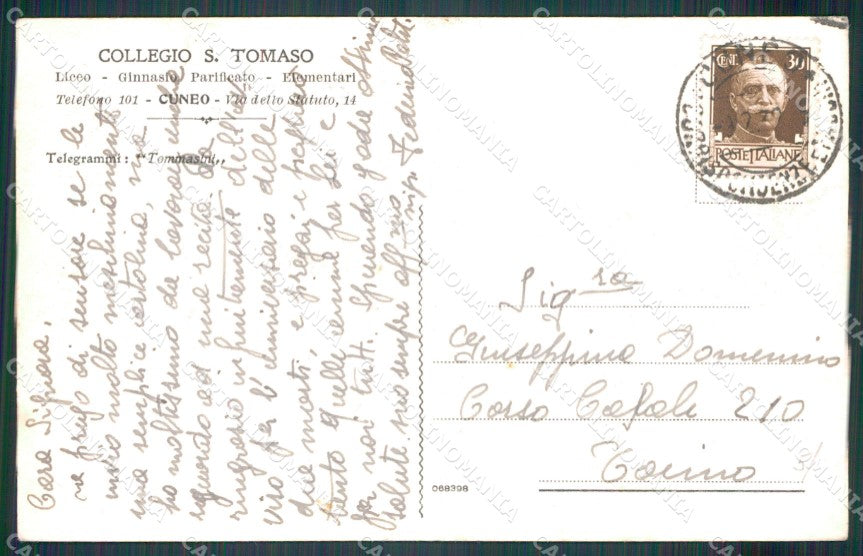 COLLEGIO S. TOMASO
Liceo - Ginnasio Parificato - Elementari
Telefono 101 - CUNEO - Via dello Statuto, 14
Telegrammi: "Tommasini„
Cara Signora,
la prego di scusare se le
invio molto meschinamente
una semplice cartolina, ma
ho moltissimo da lavorare
riguardo ad una recita. La
ringrazio infinitamente dell'
per l'anniversario delle
due morti, e pregai e pregherò
tanto quelle anime per lei e
per noi tutti. Spendo
saluti, suo sempre aff.mo
CENT. 30
POSTE ITALIANE
CORRISPONDENZE
Sig.ra
Giuseppina Domenino
Corso Casale 210
Torino
068398
CARTOLINOMANIA